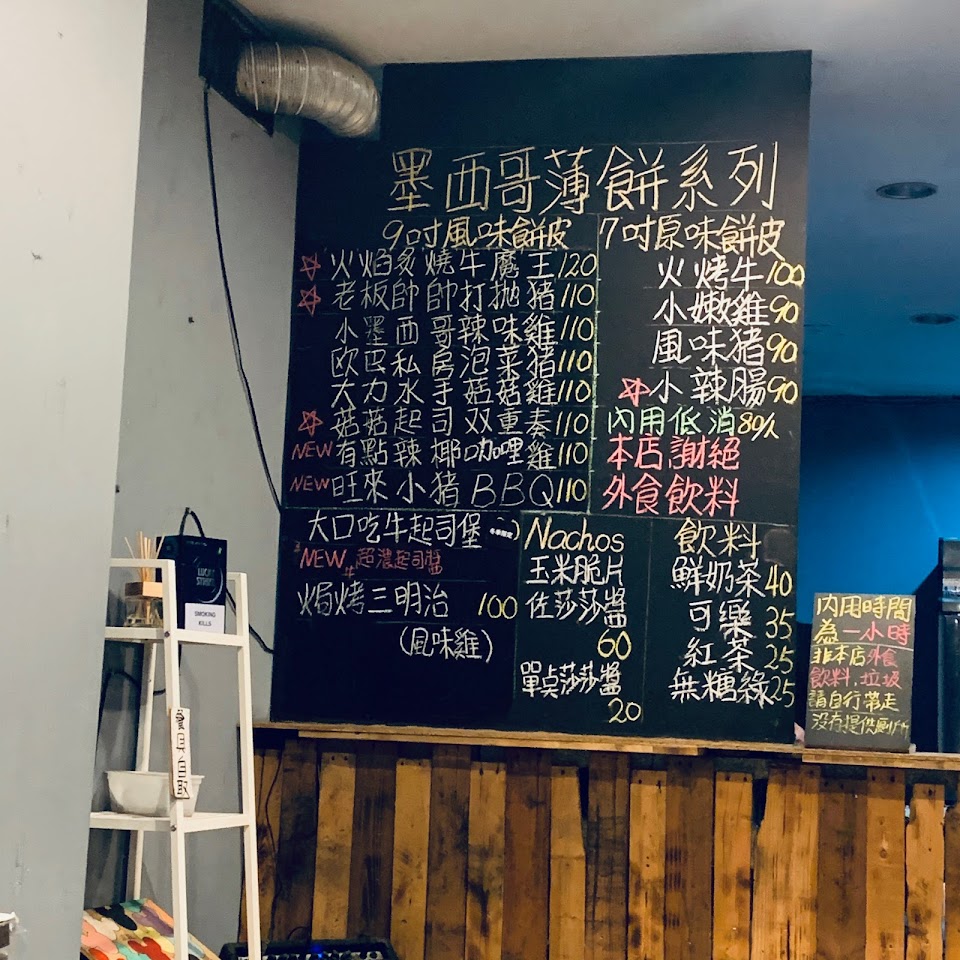 墨西哥薄餅系列
9吋風味餅皮
火焰炙燒牛魔王120
老板帥帥打拋豬110
小墨西哥辣味雞110
欧巴私房泡菜豬110
大力水手菇菇雞110
菇菇起司双重奏110
NEW有點辣椰咖哩雞110
NEW旺來小豬BBQ110
7吋原味餅皮
火烤牛100
小嫩雞90
風味豬90
小辣腸90
內用低消80/人
本店謝絕
外食飲料
大口吃牛起司堡
NEW超濃起司醬
焗烤三明治 100
(風味雞)
Nachos
玉米脆片
佐莎莎醬
60
單点莎莎醬
20
飲料
鮮奶茶40
可樂35
紅茶25
無糖綠25
內用時間
為一小時
非本店外食
飲料,垃圾
請自行帶走
沒有提供廁所
LUCKY
STRIKE
SMOKING
KILLS
餐具自取